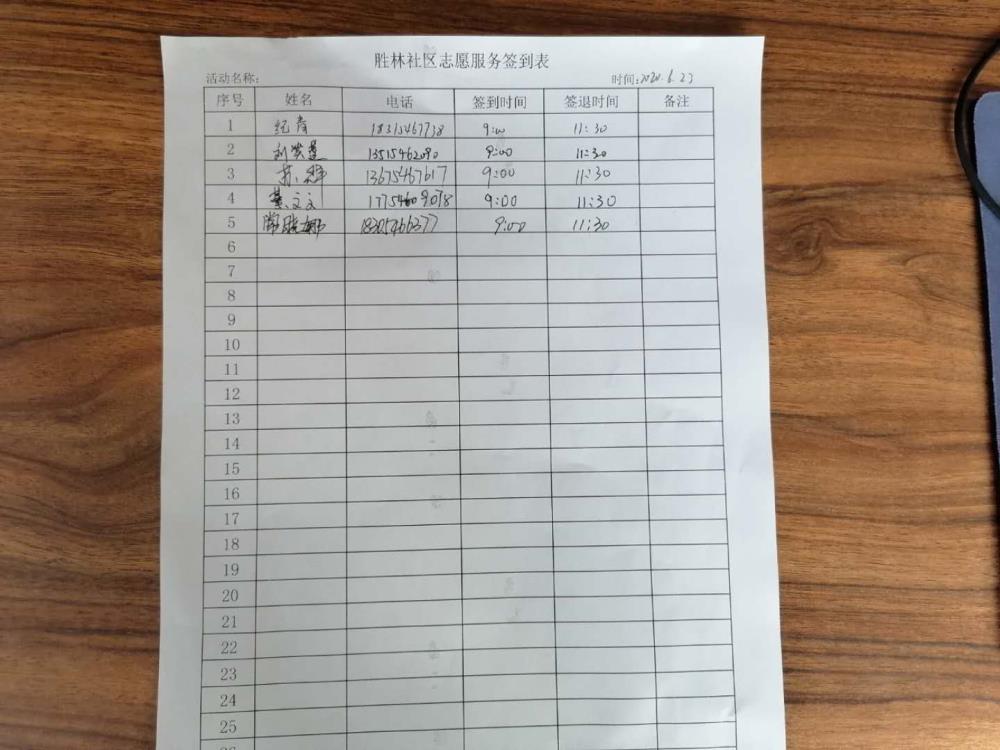 胜林社区志愿服务签到表
活动名称: 时间:2020.6.23
序号 姓名 电话 签到时间 签退时间 备注
1 纪青 18315467738 9:00 11:30
2 13515462090 9:00 11:30
3 苏 13675467617 9:00 11:30
4 文文 9:00 11:30
5 18305466377 9:00 11:30
6
7
8
9
10
11
12
13
14
15
16
17
18
19
20
21
22
23
24
25